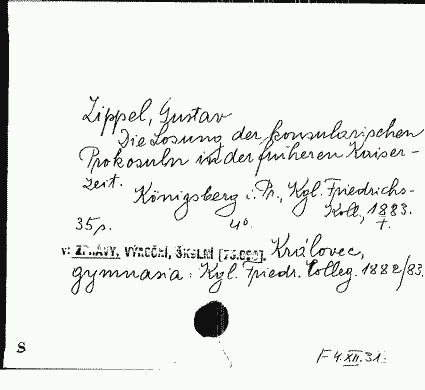 Zippel, Gustav
Die Losung der konsularischen
Prokosuln in der früheren Kaiser-
zeit.
Königsberg i. Pr., Kgl. Friedrichs-
Koll., 1883.
35 p. 4°. †.
v: ZPRÁVY, VÝROČNÍ, ŠKOLNÍ Královec,
gymnasia: Kgl. Friedr. Colleg. 1882/83.
8
F 4.XII.31.